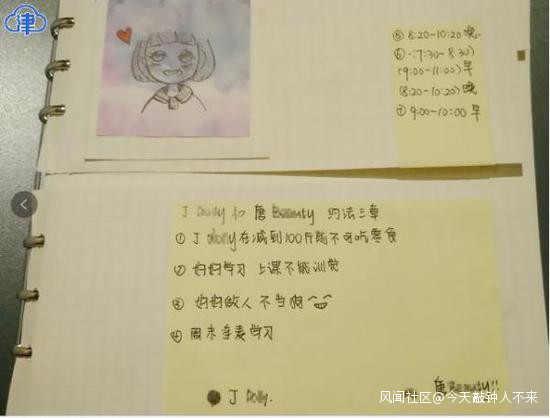 津
⑤ 8:20-10:20 晚
⑥ (7:30-8:30)
(9:00-11:00) 早
(8:20-10:20) 晚
⑦ 9:00-10:00 早
J 和 唐 约法三章
① J 在减到100斤前不可吃零食
② 好好学习 上课不能训觉
③ 好好做人 不当狗
④ 周末连麦学习
J Dolly.
唐 !!
风闻社区@今天敲钟人不来